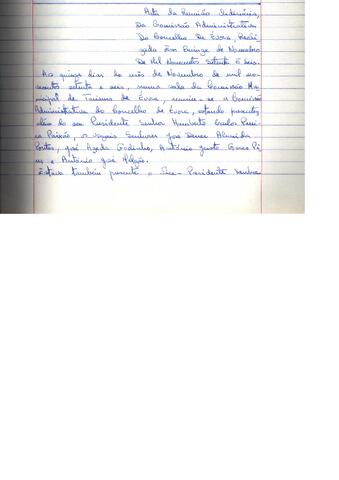 Acta da Reunião Ordinária,
Da Comissão Administrativa
Do Concelho De Évora, Reali
zada Em Quinze de Novembro
De Mil Novecentos Setenta E Seis.
Aos quinze dias do mês de Novembro de mil no-
vecentos setenta e seis, numa sala da Comissão Mu
nicipal de Turismo de Évora, reuniu-se a Comissão
Administrativa do Concelho de Évora, estando presentes
além do seu Presidente Senhor Humberto Carlos Perei-
ra Paixão, os vogais Senhores José Almeida
Portas, José Azeda Godinho, António Gomes Pi
res e António José
Estava também presente o Vice-Presidente Senhor